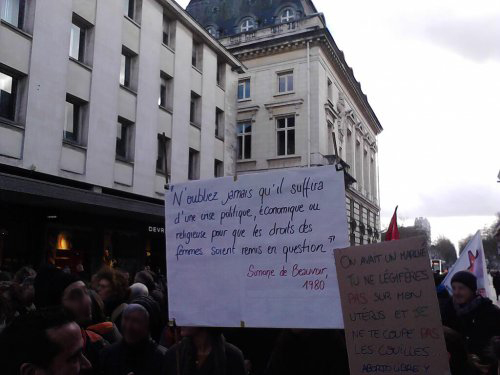 DEVR
"N'oubliez jamais qu'il suffira
d'une crise politique, économique ou
religieuse pour que les droits des
femmes soient remis en question."
Simone de Beauvoir,
1980
ON AVAIT UN MARCHÉ
TU NE LÉGIFÈRES
PAS SUR MON
UTÉRUS ET JE
NE TE COUPE PAS
LES COUILLES